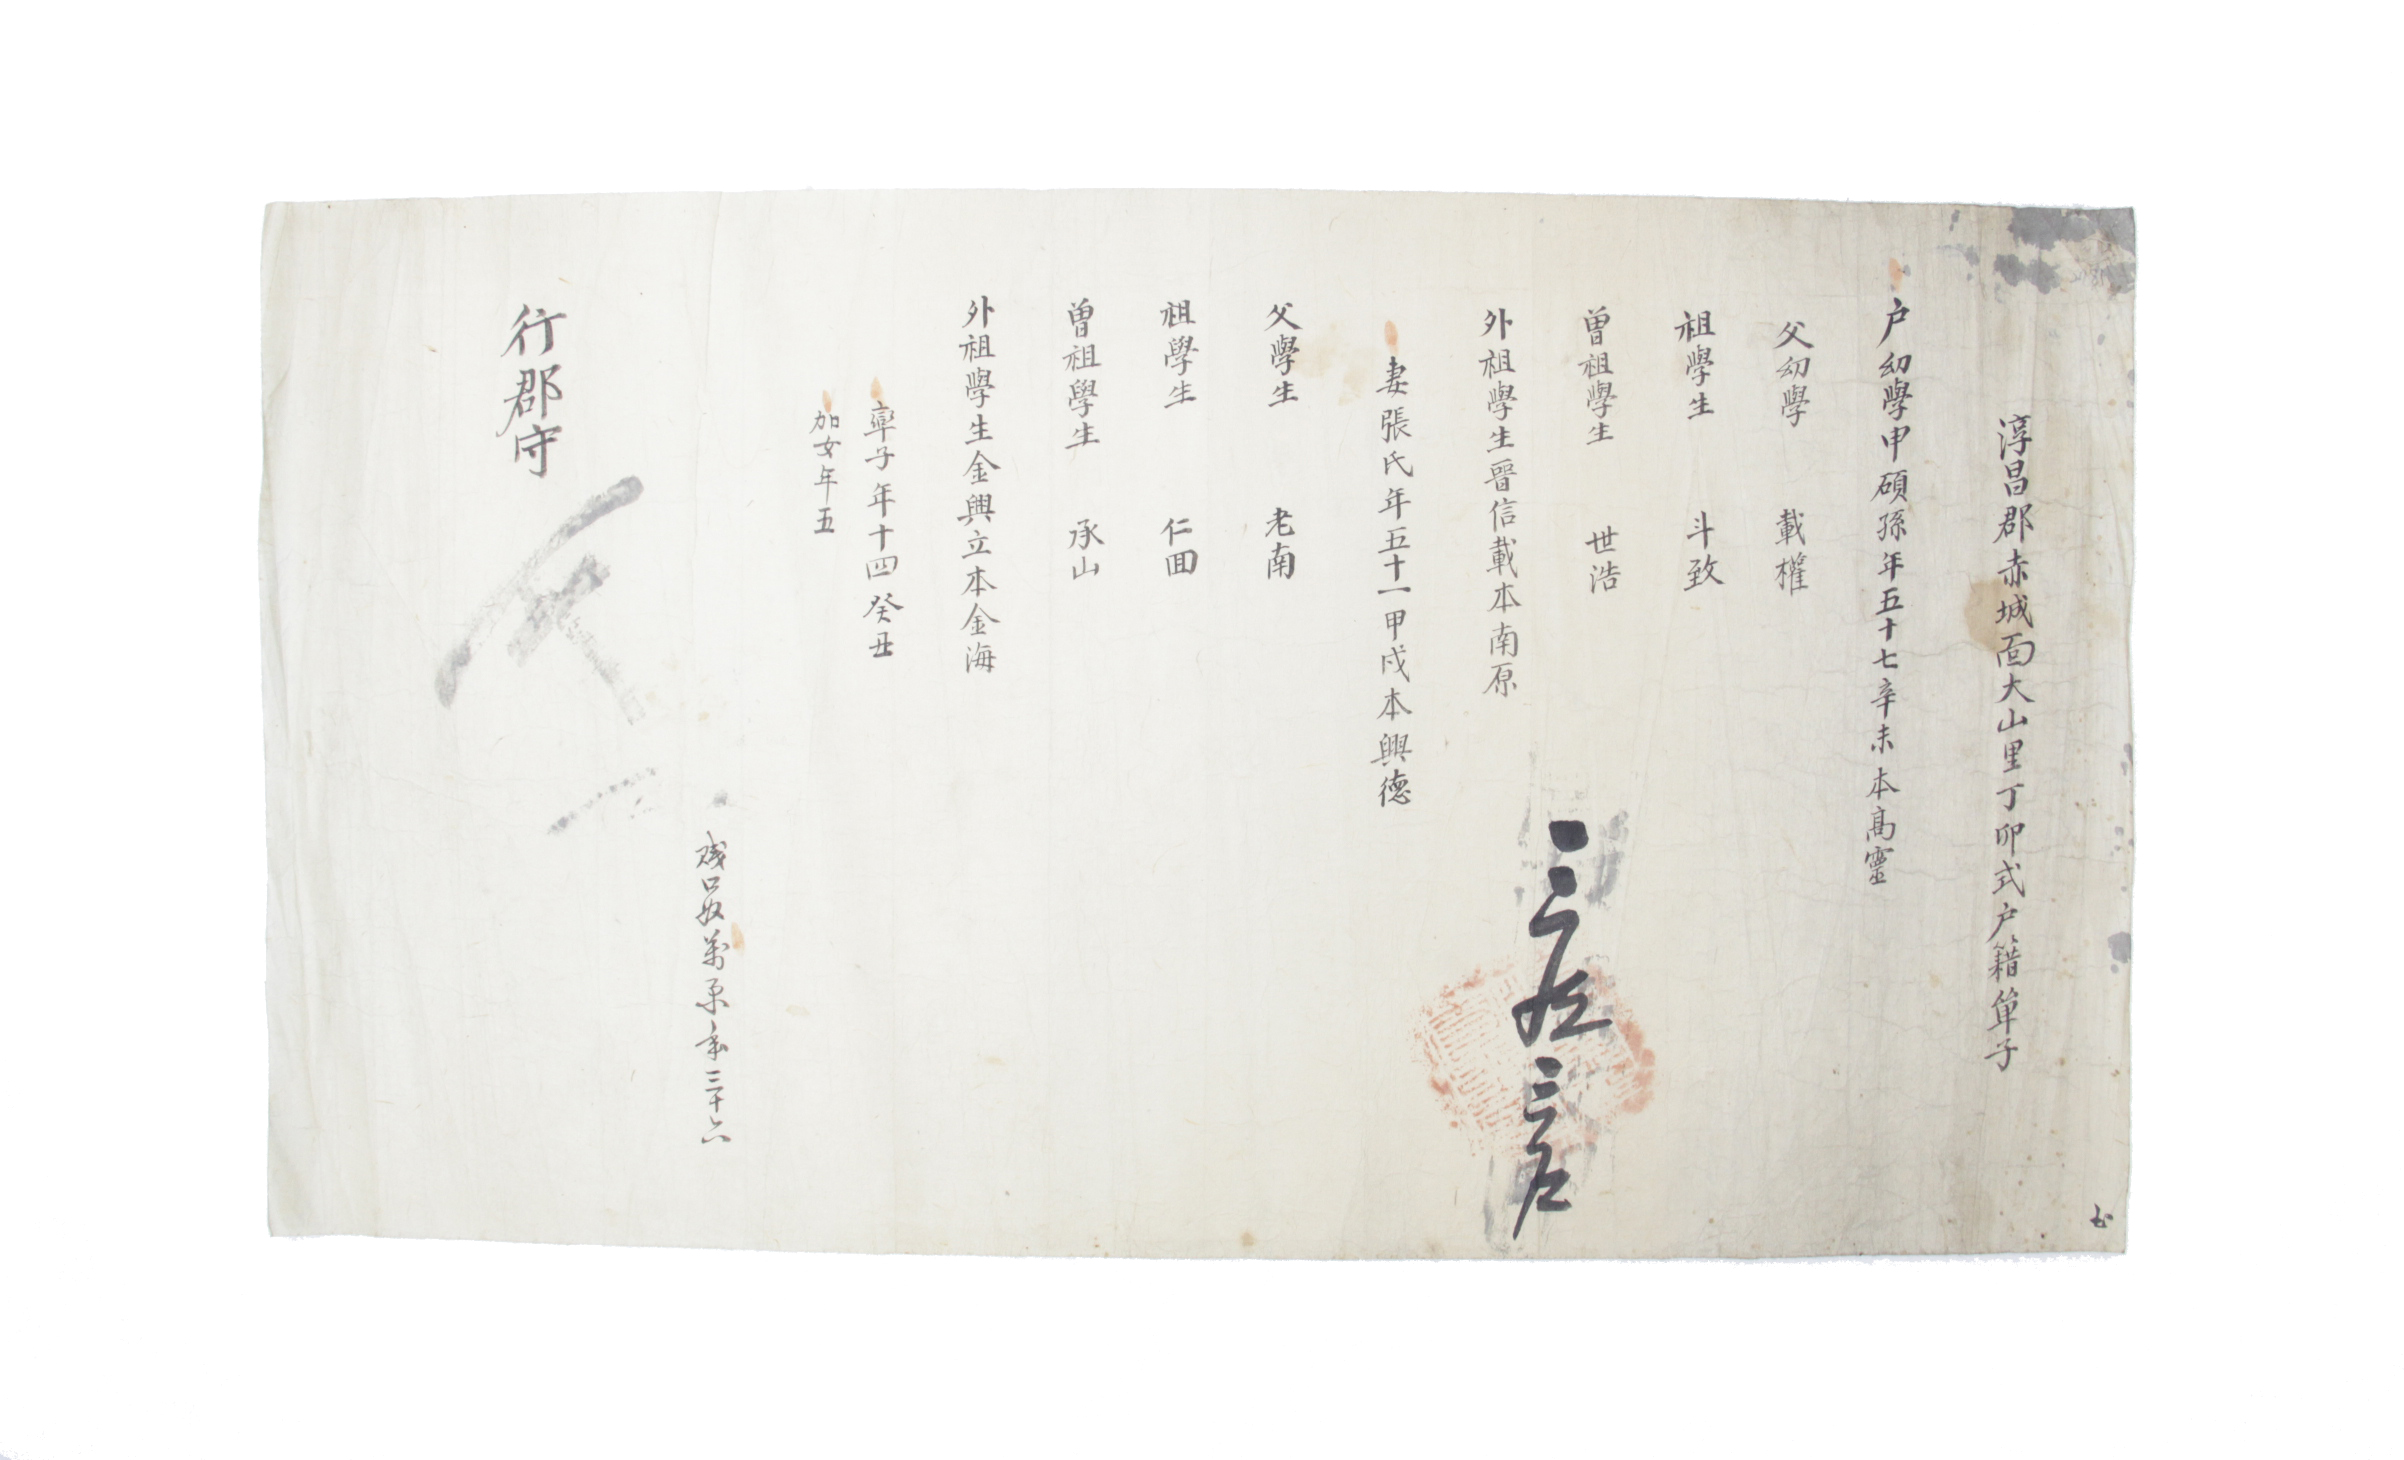 淳昌郡赤城面大山里丁卯式户籍單子
户幼學申碩孫年五十七辛未本高靈
父幼學 載權
祖學生 斗致
曾祖學生 世浩
外祖學生晉信載本南原
妻張氏年五十一甲戌本興德
父學生 老南
祖學生 仁回
曾祖學生 承山
外祖學生金興立本金海
率子年十四癸丑
加女年五
口奴萬年三十六
行郡守